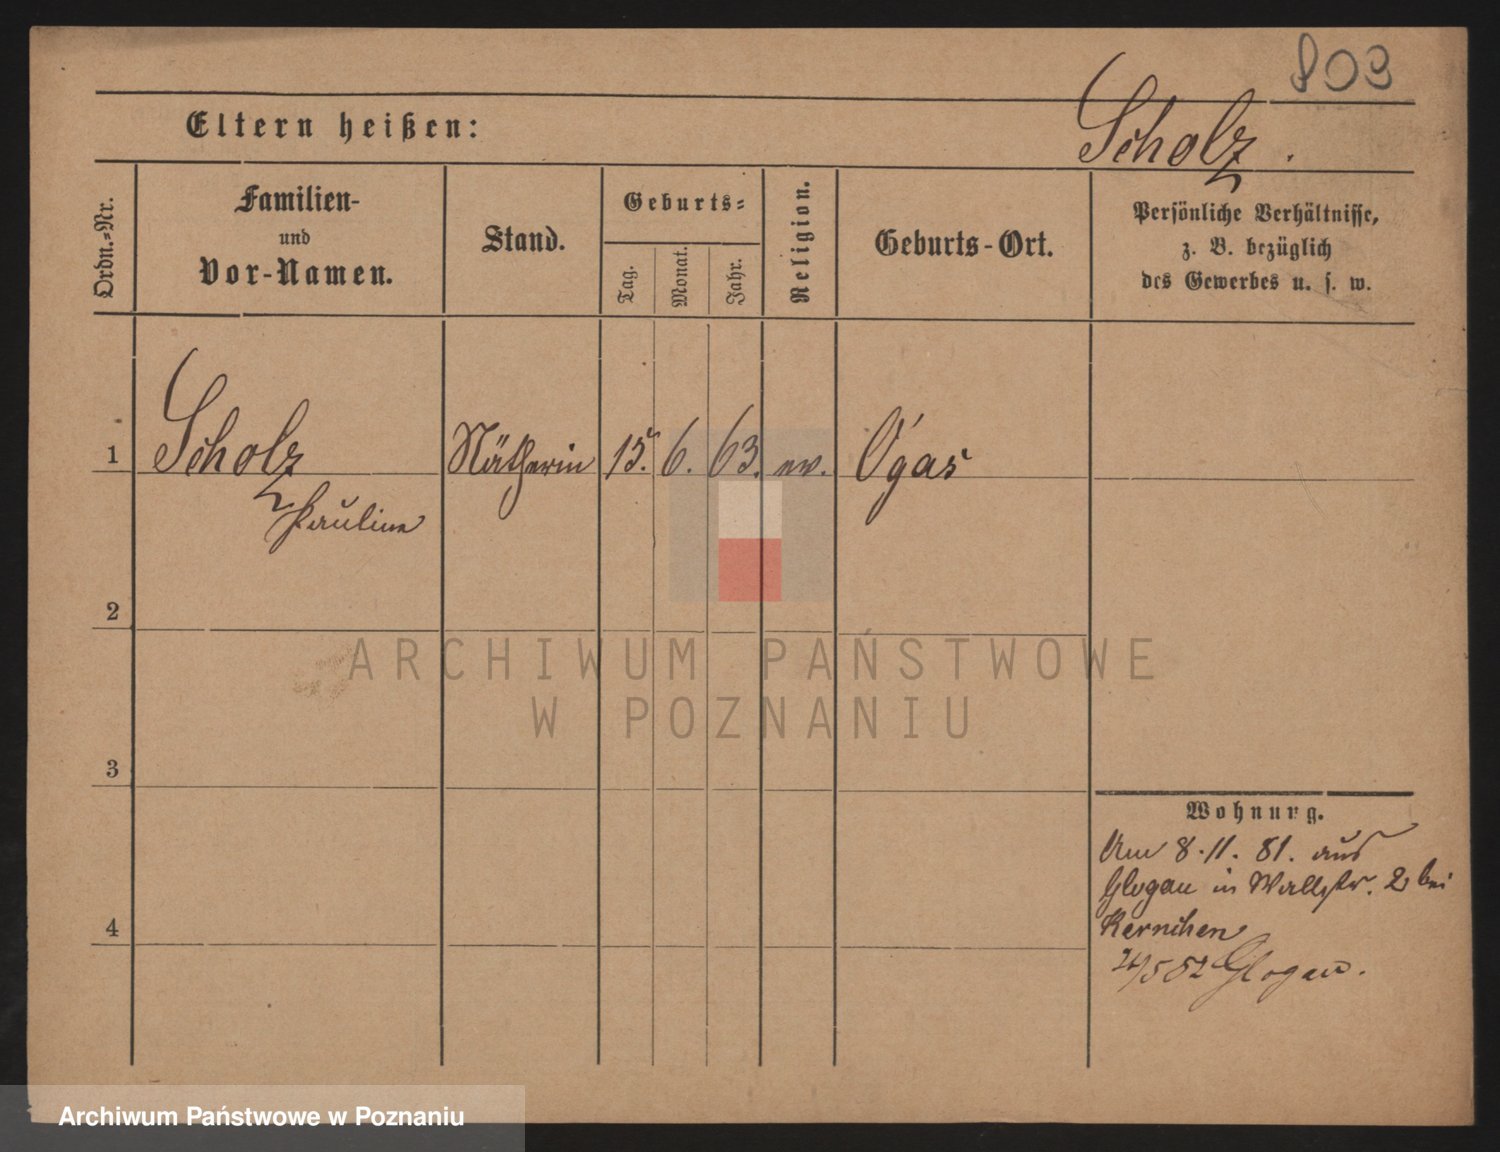 803
Scholz.
Eltern heißen:
Ordn.-Nr.
Familien-
und
Vor-Namen.
Stand.
Geburts-
Tag.
Monat.
Jahr.
Religion.
Geburts-Ort.
Persönliche Verhältnisse,
z. B. bezüglich
des Gewerbes u. s. w.
1 Scholz Nätherin 15. 6. 63. ev.
Pauline
2
ARCHIWUM PAŃSTWOWE
W POZNANIU
3
Wohnung.
Am 8.11.81. aus
Glogau in Wallstr. 2 bei
Kernchen
4
Glogau.
Archiwum Państwowe w Poznaniu